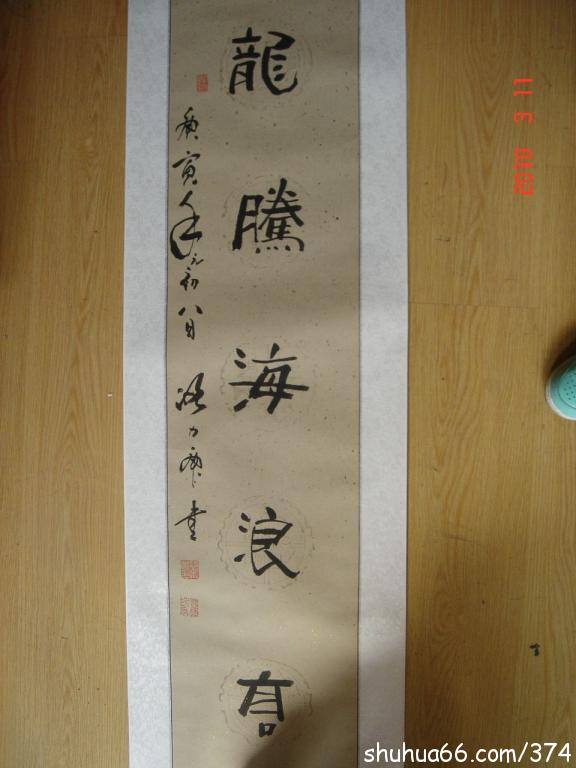 龍騰海浪高
庚寅年元初八日
书
2010 3 11
shuhua66.com/374